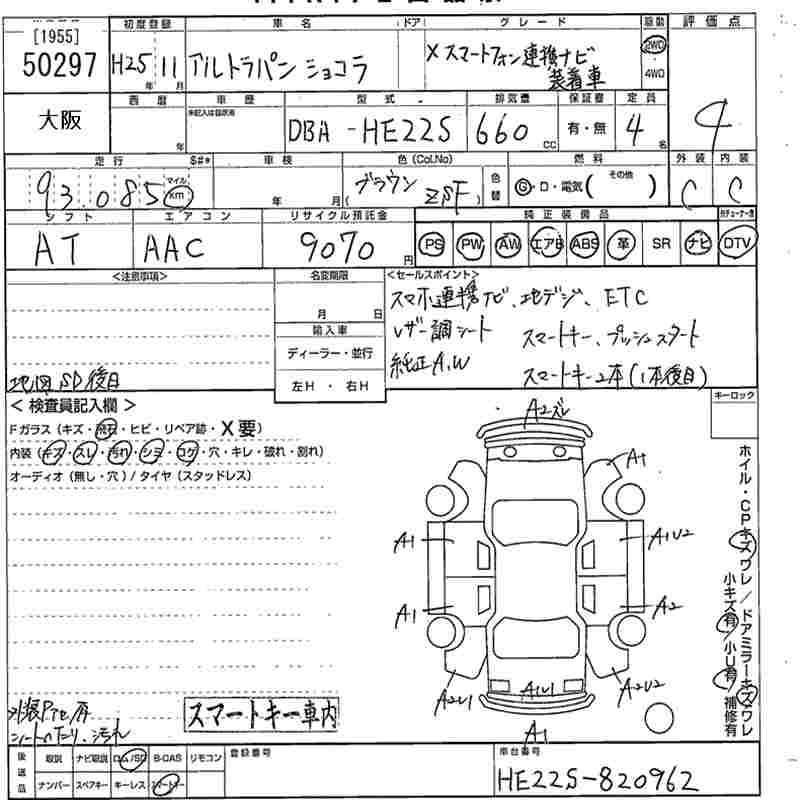 初度登録 車名 ドア グレード 駆動 評価点
[1955]
50297 H25 11 アルトラパン ショコラ X スマートフォン連携ナビ 2WD
年 月 装着車 4WD
大阪 西暦 車歴 型式 排気量 保証書 定員 4
未記入は自家用
年 DBA -HE22S 660 CC 有・無 4 名
走行 $#* 車検 色(Col.No) 燃料 外装 内装
93.085 マイル km 年 月 (ブラウン ZSF) 色替 G・D・電気( その他 ) C C
シフト エアコン リサイクル預託金 純正装備品
AT AAC 9070 円 PS PW AW エアB ABS 革 SR ナビ DTV
<注意事項> 名変期限 <セールスポイント>
月 日 スマホ連携ナビ、地デジ、ETC
輸入車 レザー調シート スマートキー、プッシュスタート
ディーラー・並行 純正A.W
地図SD後日 左H・右H スマートキー2本(1本後日)
< 検査員記入欄 > A2ズレ キーロック
Fガラス(キズ・飛石・ヒビ・リペア跡・X要)
内装(キズ・スレ・汚れ・シミ・コゲ・穴・キレ・破れ・割れ) A1
オーディオ(無し・穴)/タイヤ(スタッドレス)
ホイル・CPキズワレ/ドアミラーキズワレ
小キズ有/小U有/補修有
A1 A1U2
A1 A2
A2U1 A1U1 A2U2
A1
シートへたり、汚れ スマートキー車内
後送品 取説 ナビ取説 ロム/SD B-CAS リモコン 登録番号 車台番号
ナンバー スペアキー キーレス スマートキー HE22S-820962